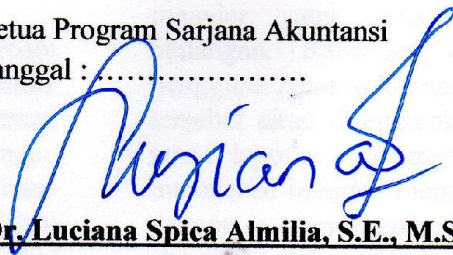 etua Program Sarjana Akuntansi
anggal : .....................
Dr. Luciana Spica Almilia, S.E., M.S